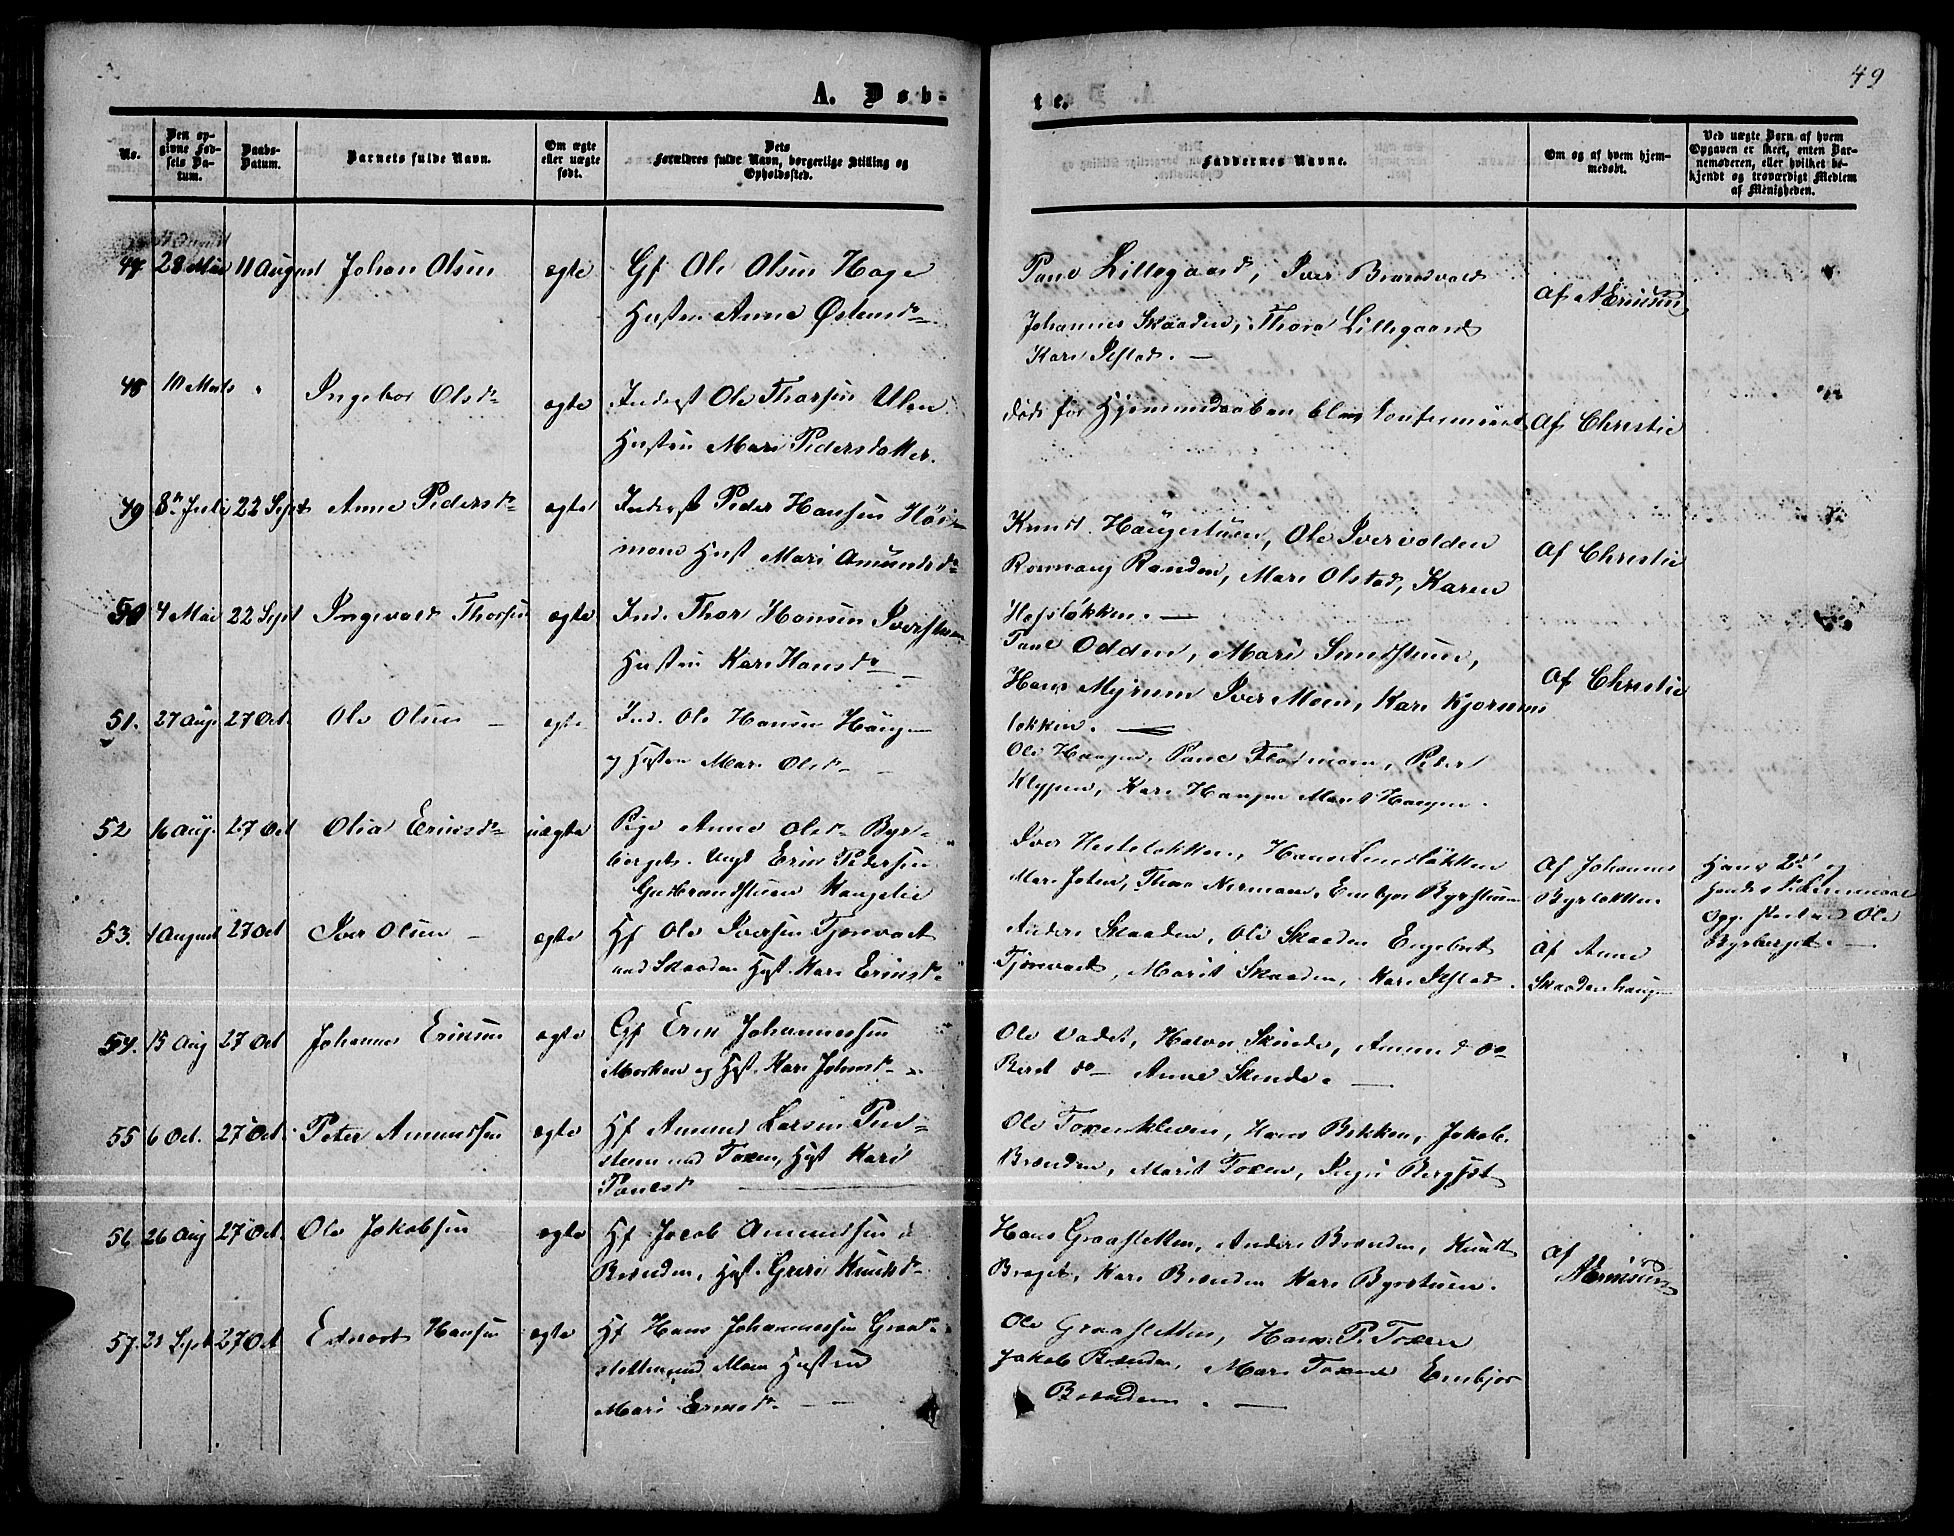 49
A. Døb-
te.
No.
Den op-
givne Fød-
sels Da-
tum.
Daabs-
Datum.
Barnets fulde Navn.
Om ægte
eller uægte
født.
Dets
Forældres fulde Navn, borgerlige Stilling og
Opholdssted.
Faddernes Navne.
Om og af hvem hjem-
medøbt.
Ved uægte Børn af hvem
Opgaven er skeet, enten Bar-
nemoderen, eller hvilket be-
kjendt og troværdigt Medlem
af Menigheden.
47 28 Mai 11 August Johan Olsen ægte Gf Ole Olsen Hage
Hustru Anne Østensd
Paul Lillegaard, Iver Brandvold
Johannes Skaaden, Thora Lillegaard
Kari
af
48 10 Marts " Ingebor Olsd ægte Inderst Ole Thorsen Ulen
Hustru Mari Pedersdatter.
døde før Hjemmedaaben blev konfirmeret
Af Christie
49 8de Juli 22 Sept Anne Pedersd ægte Inderst Peder Hansen
moen Hust Mari Amundsd
Knud Haugestuen, Ole Ivervolden
Rønnaug Randen, Mari Olstad, Karen
Hofsløkken.
Af Christie
50 4 Mai 22 Sept Ingevald Thorsen ægte Ind. Thor Hansen Iverstuen
Hustru Kari Hansd
Paul Odden, Mari Sundstuen,
Hans Myrum Iver Moen, Kari Kjorsums
løkken.
Af Christie
51. 27 Aug 27 Oct. Ole Olsen ægte Ind. Ole Hansen Haugen
og Hustru Mari Olsd
Ole Haugen, Paul Flatmoen, Peder
Klypen, Kari Haugen Marit Haugen.
52 16 Aug. 27 Oct Olia Eriksd uægte Pige Anne Olsd Byr-
berget. Ungk Erik Pedersen
Gudbrandstuen Kongelie
Iver Hesteløkken, Hans
Mari Thea Embjør Byrstuen
Af Johannes
Byrløkken
Hans 2det og
Hendes
Opg. skeet ved Ole
Byrberget.
53. 1 August 27 Oct Iver Olsen ægte Hf Ole Iversen
ved Skaaden Hust. Kari Eriksd
Anders Skaaden, Ole Skaaden Engebret
Marit Skaaden, Kari
af Anne
Skaadenhaugen
54. 15 Aug 27 Oct Johannes Eriksen ægte Gf Erik Johannessen
Morken og Hust. Kari Johnsd
Ole Vadet, Halvor Skinde, Amund do
Beret do Anne Skinde.
55 6 Oct. 27 Oct. Peter Amundsen ægte Hf Amund Larsen
stuen ved Toxen, Hust Kari
Paulsd
Ole Toxenkleven, Hans Bekken, Jakob
Brænden, Marit Toxen,
56 26 Aug 27 Oct. Ole Jakobsen ægte Hf Jacob Amundsen
Brænden, Hust. Guri Knudsd
Hans Graasletten, Anders Brænden, Knud
Kari Brænden Kari Byrstuen.
af
57. 21 Sept 27 Oct Edevart Hansen ægte Hf Hans Johannessen Graa-
sletten ved Moen Hustru
Mari Eriksd
Ole Graasletten, Hans P. Toxen
Jakob Brænden, Mari Toxen Embjør
Brænden.